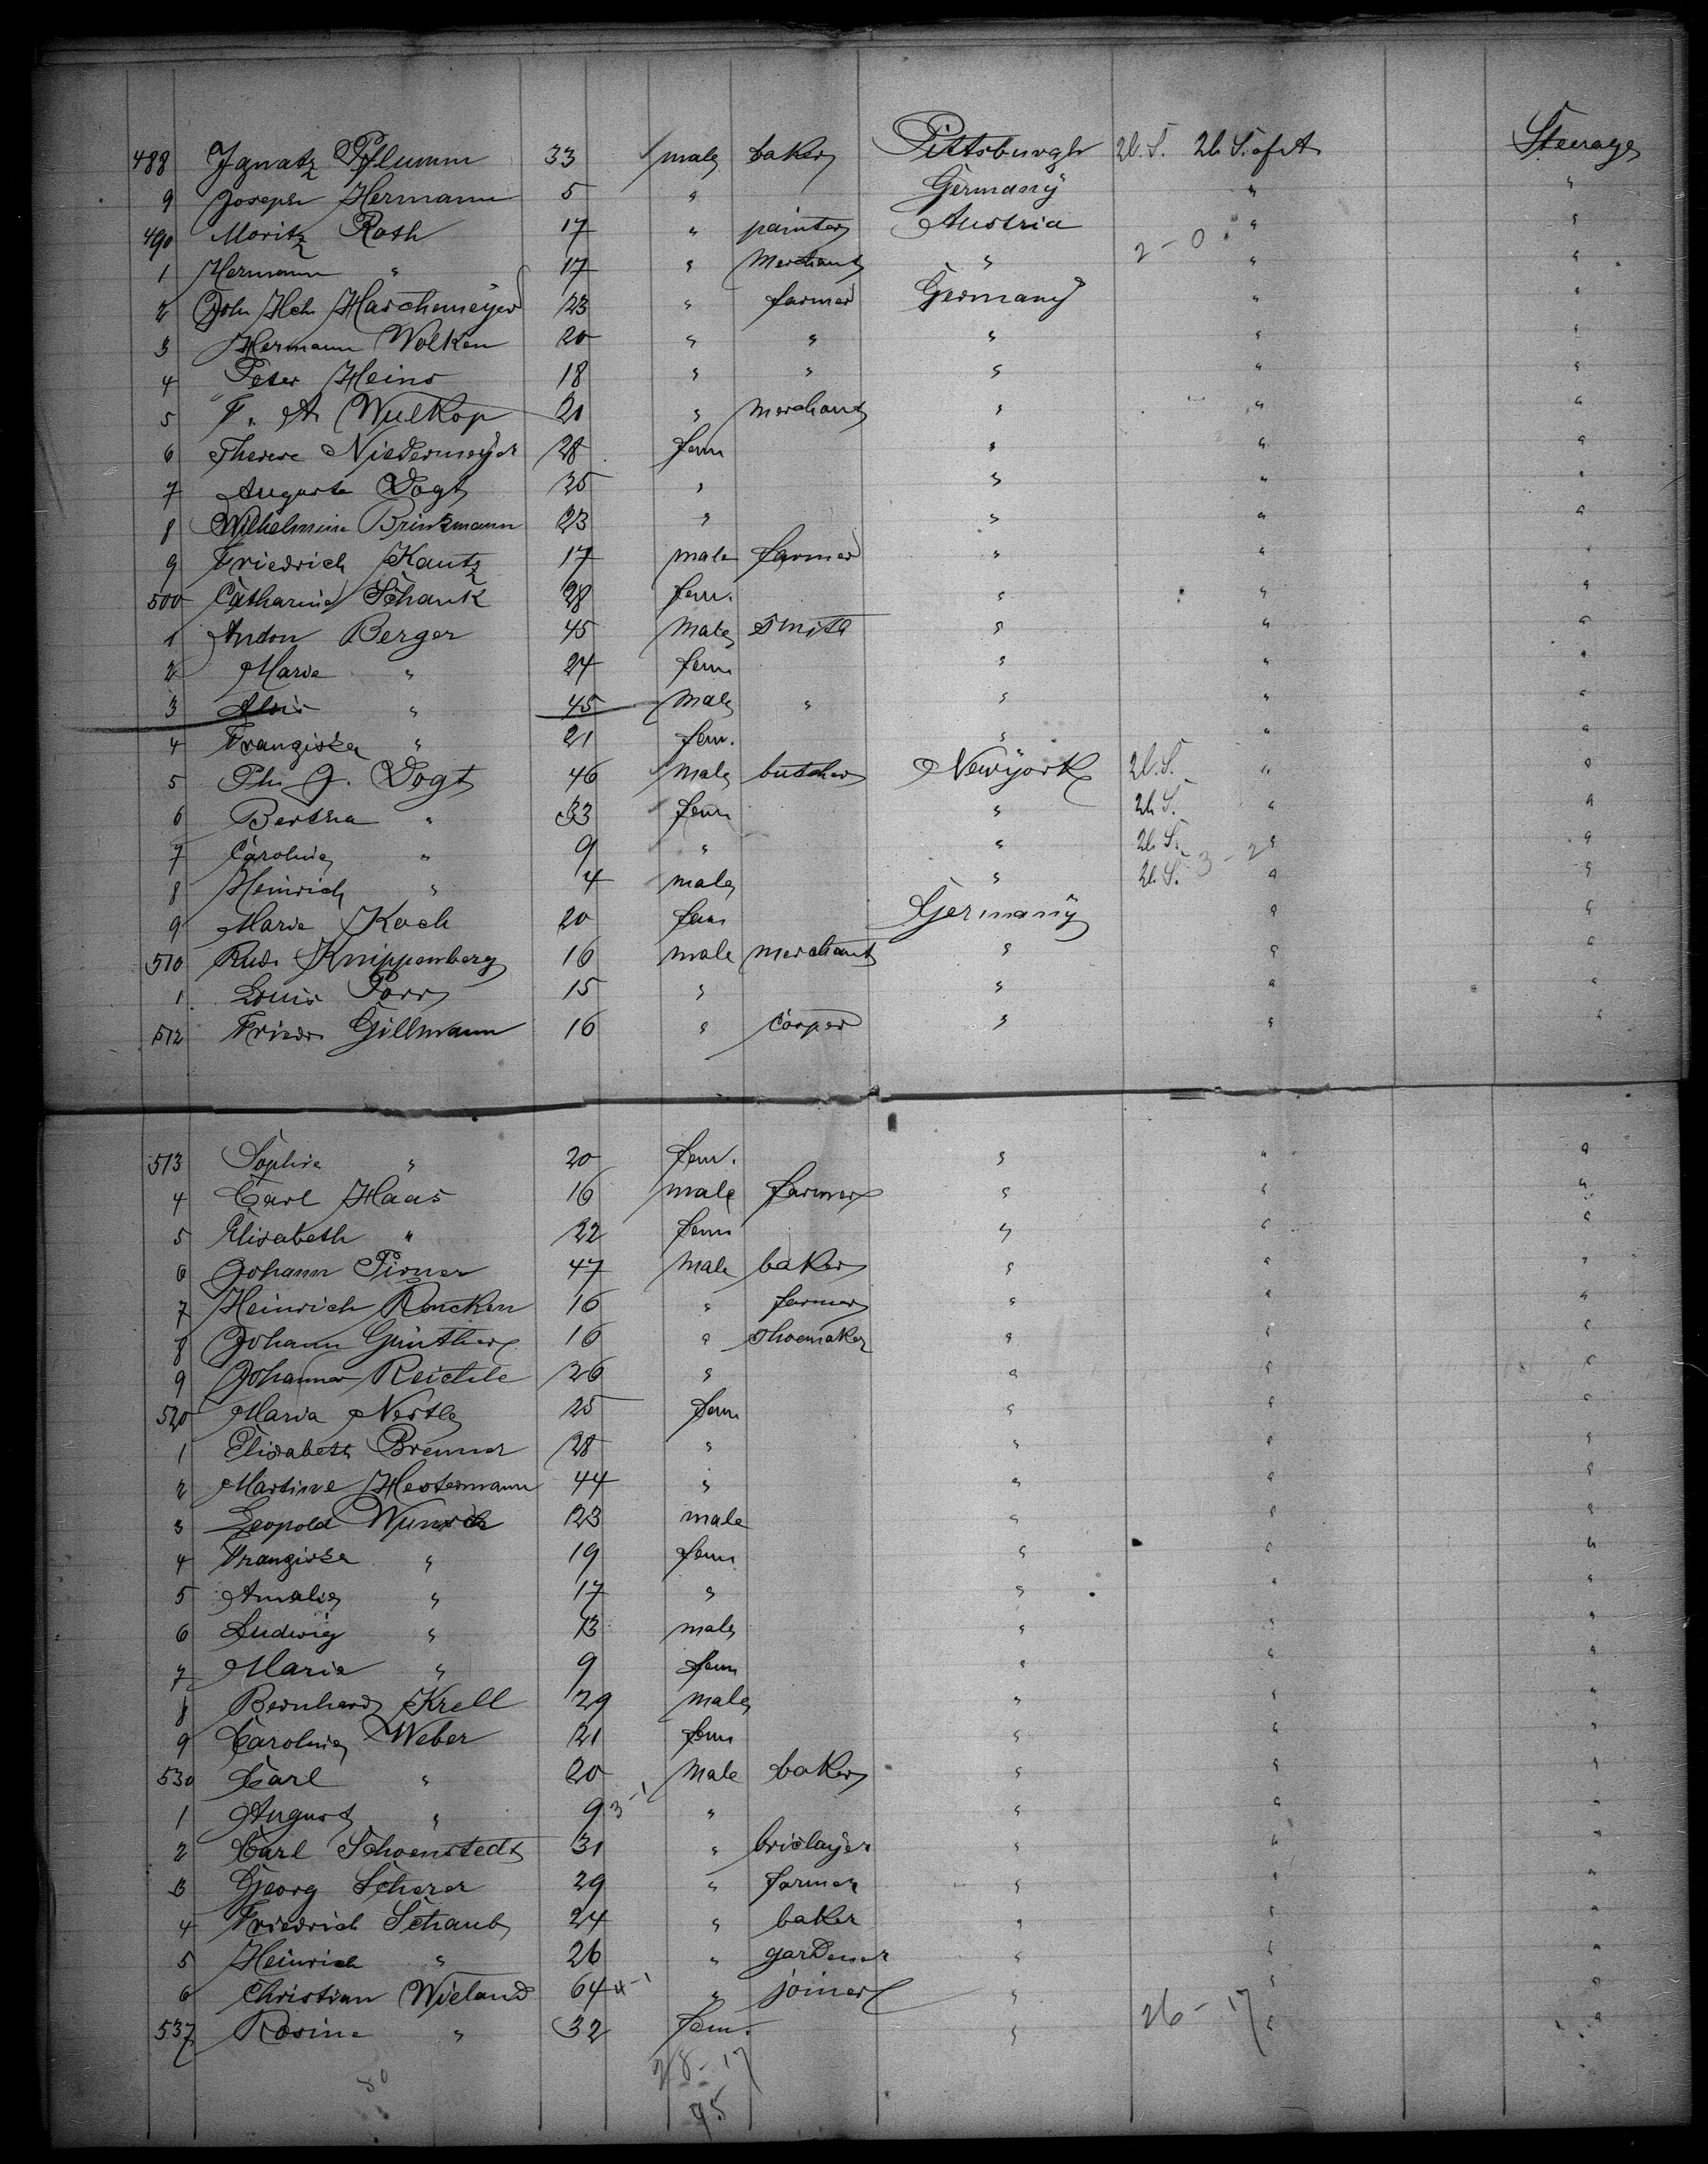 488 Ignatz Pflumm 33 male baker Pittsburgh U.S. U.S. of A Steerage
9 Joseph Hermann 5 " Germany " "
490 Moritz Roth 17 " painter Austria " "
1 Hermann " 17 " Merchant " 2-0 " "
2 Joh Hch Haschemeyer 23 " farmer Germany " "
3 Hermann Wolken 20 " " " " "
4 Peter Heins 18 " " " " "
5 F. A Wulkop 21 " merchant " " "
6 Therese Niedermeyer 28 fem " " "
7 Auguste Vogt 35 " " " "
8 Wilhelmine Brinkmann 23 " " " "
9 Friedrich Kautz 17 male farmer " " "
500 Catharina Schank 28 fem. " " "
1 Andon Berger 45 male Smith " " "
2 Marie " 24 fem " " "
3 Alois " 45 male " " " "
4 Franziska " 21 fem. " " "
5 Ph. J. Vogt 46 male butcher New York U.S. " "
6 Bertha " 33 fem " U.S. " "
7 Caroline " 9 " " U.S. " "
8 Heinrich " 4 male " U.S. 3-2 " "
9 Marie Koch 20 fem Germany " "
510 Rud. Knippenberg 16 male merchant " " "
1 Louis Porr 15 " " " "
512 Friedr Gillmann 16 " Cooper " " "
513 Sophie " 20 fem. " " "
4 Carl Haas 16 male farmer " " "
5 Elisabeth " 22 fem " " "
6 Johann Pirner 47 male baker " " "
7 Heinrich Rencken 16 " farmer " " "
8 Johann Günther 16 " Shoemaker " " "
9 Johannes Reichle 26 " " " "
520 Maria Nestle 25 fem " " "
1 Elisabeth Brenner 28 " " " "
2 Martine Hestermann 44 " " " "
3 Leopold Wunsch 23 male " " "
4 Franziska " 19 fem " " "
5 Amalie " 17 " " " "
6 Ludwig " 13 male " " "
7 Maria " 9 fem " " "
8 Bernhard Krell 29 male " " "
9 Caroline Weber 21 fem " " "
530 Carl " 20 male baker " " "
1 August " 9 3-1 " " " "
2 Carl Schoenstedt 31 " briclayer " " "
3 Georg Scherer 29 " farmer " " "
4 Friedrich Schaub 24 " baker " " "
5 Heinrich " 26 " gardener " " "
6 Christian Wieland 64 " joiner " " "
537 Rosine " 32 fem. " 26-17 " "
28-17
50
95